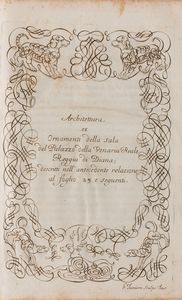 Architettura,
et
Ornamenti della Sala
del Palazzo della Venaria Reale
Reggia di Diana;
descritti nell'antecedente relazione
al foglio e seguenti.
Sculps.